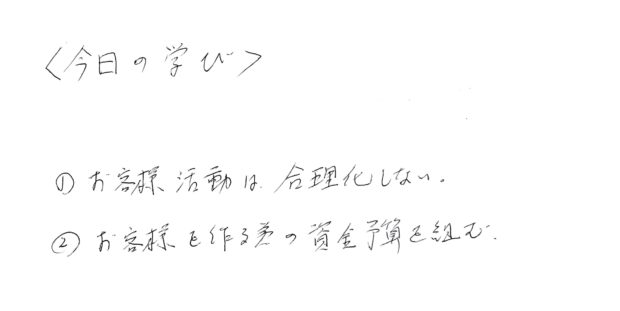 <今日の学び>
① お客様活動は合理化しない.
② お客様を作る為の資金予算を組む.